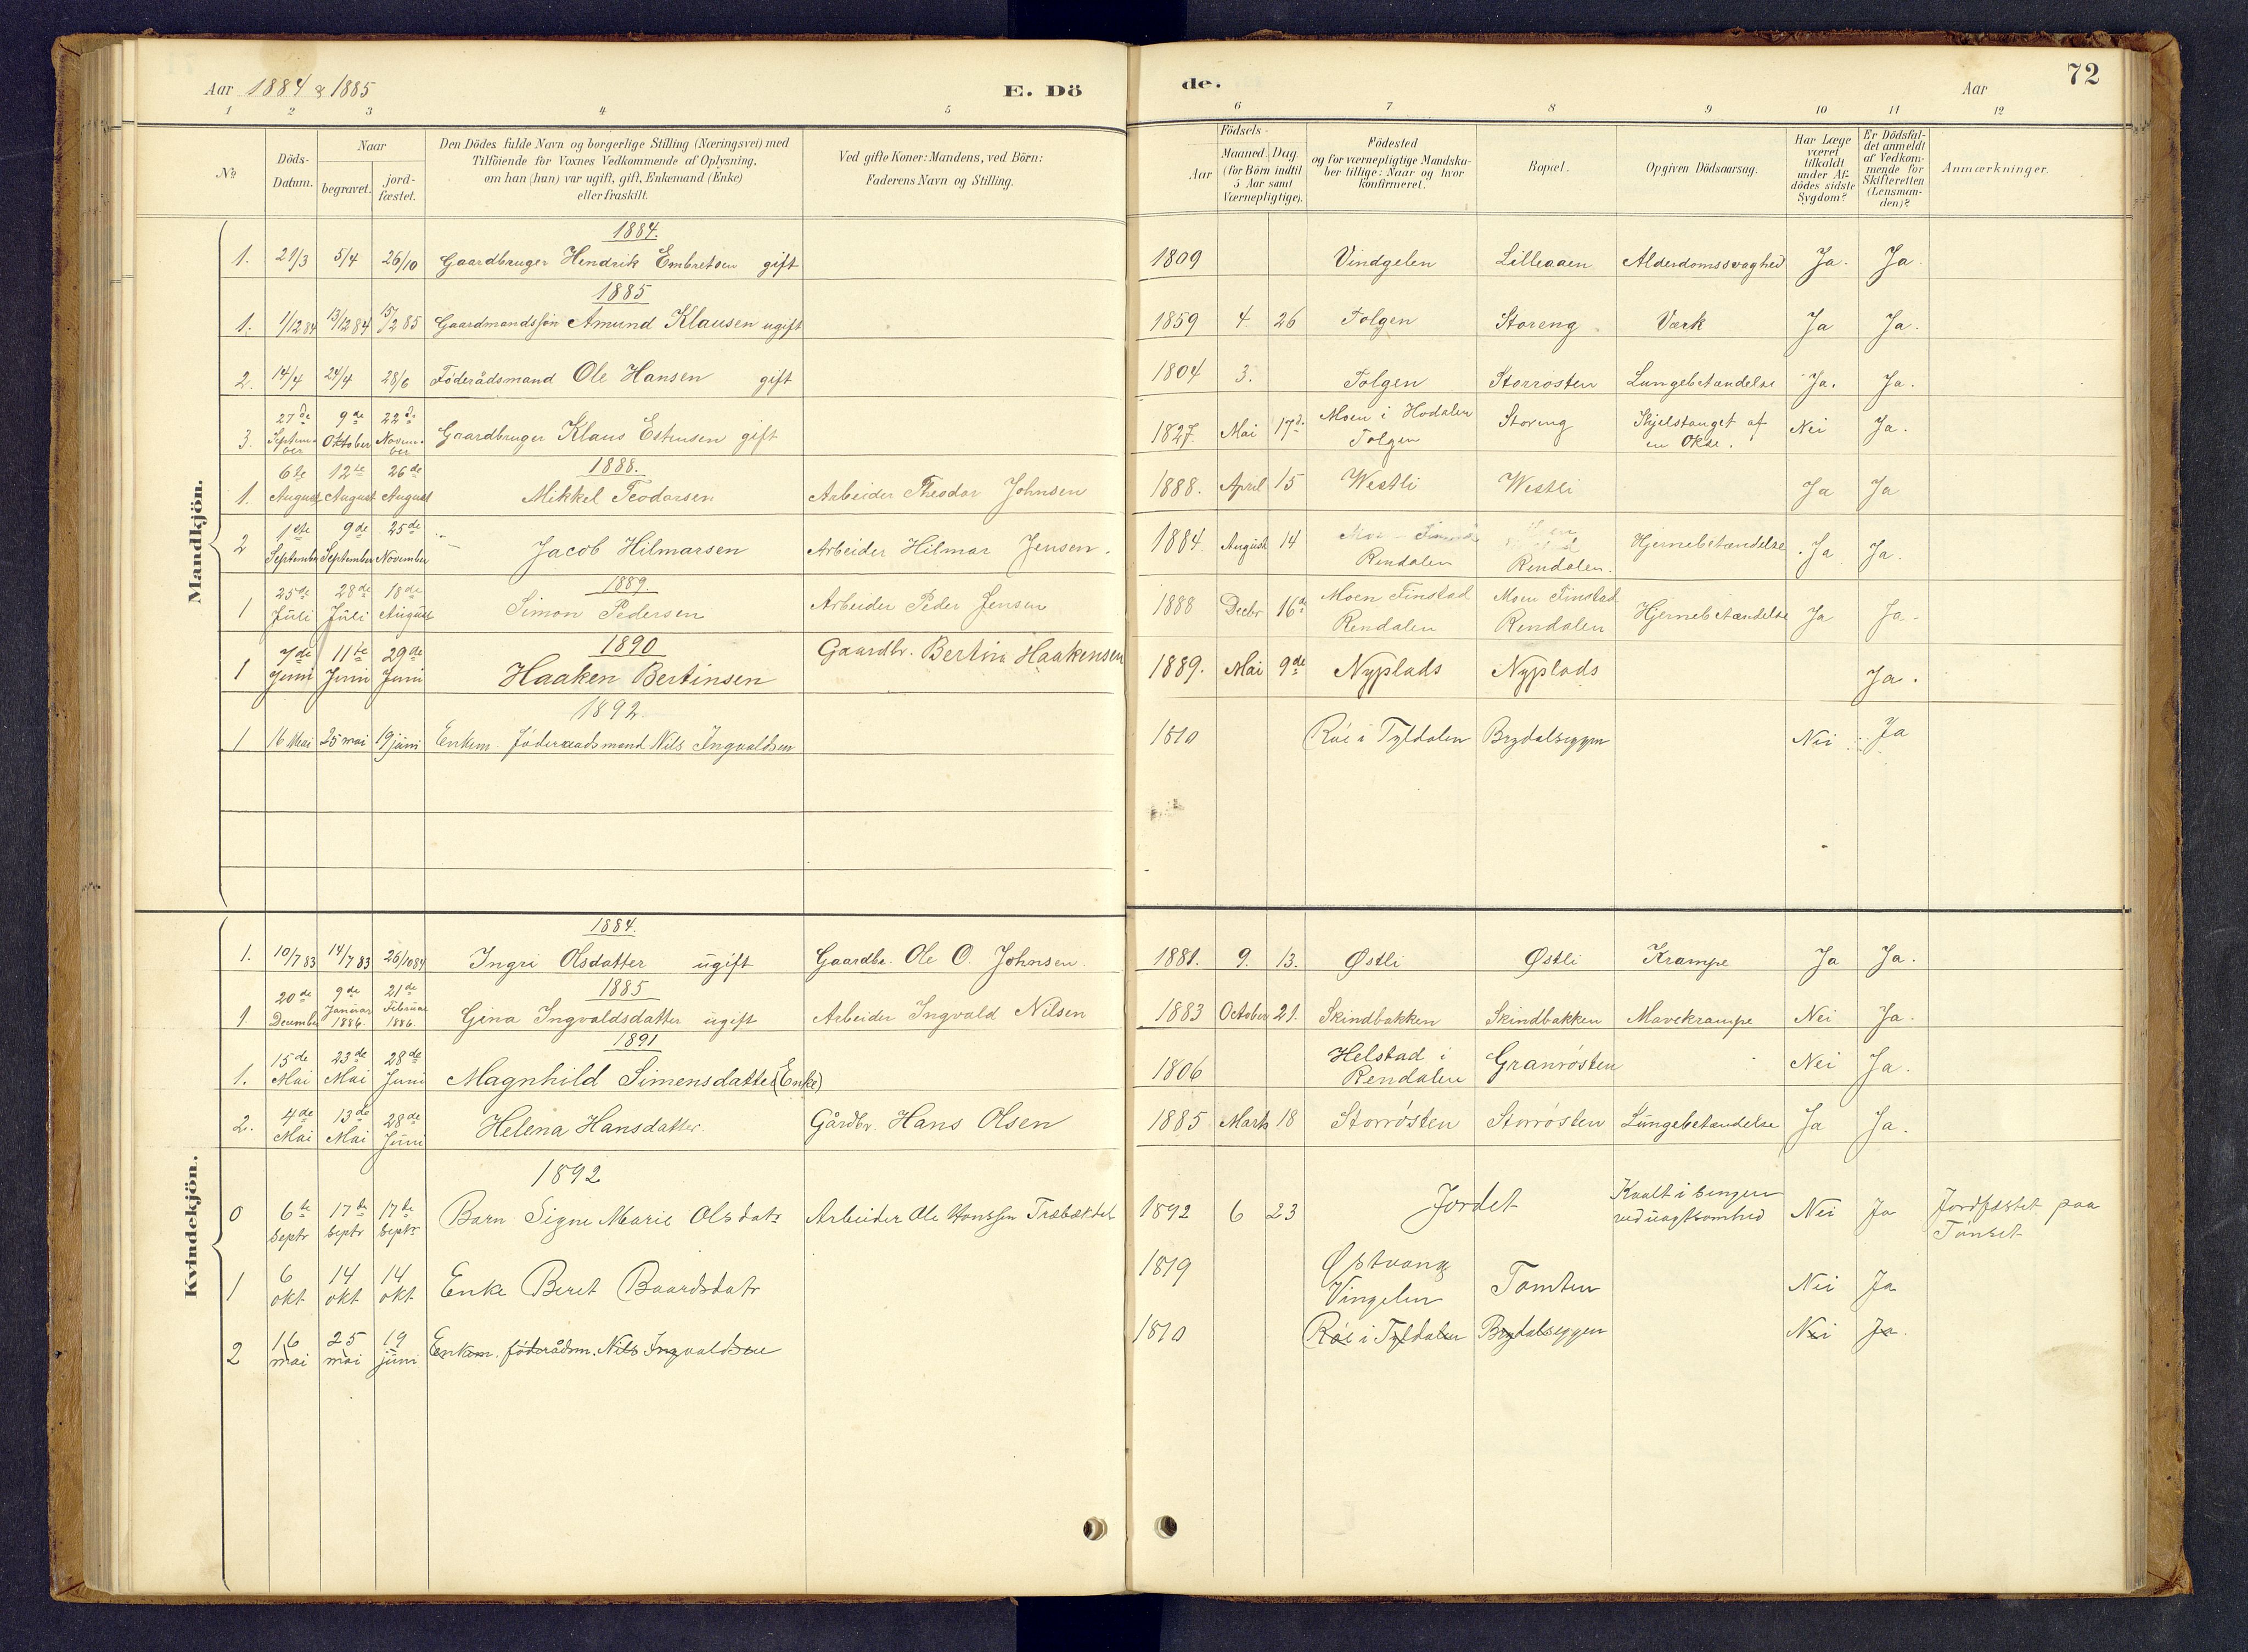 Aar 1884 & 1885
E. Dö
de.
Aar
72
1 2 3 4 5 6 7 8 9 10 11 12
No
Döds-Datum.
Naar
begravet.
jord-fæstet.
Den Dödes fulde Navn og borgerlige Stilling (Næringsvei) med
Tilföiende for Voxnes Vedkommende af Oplysning,
om han (hun) var ugift, gift, Enkemand (Enke)
eller fraskilt.
Ved gifte Koner: Mandens, ved Börn:
Faderens Navn og Stilling.
Födsels-
Aar
Maaned. Dag.
(for Börn indtil
5 Aar samt
Værnepligtige).
Födested
og for værnepligtige Mandska-
ber tillige: Naar og hvor
konfirmeret.
Bopæl.
Opgiven Dödsaarsag.
Har Læge
været
tilkaldt
under Af-
dödes sidste
Sygdom?
Er Dödsfal-
det anmeldt
af Vedkom-
mende for
Skifteretten
(Lensman-
den)?
Anmærkninger.
Mandkjön.
1884.
1. 21/3 5/4 26/10 Gaardbruger Hendrik Embretsen gift 1809 Vindgelen Lilleaaen Alderdomssvaghed Ja. Ja.
1885
1. 1/12 84 13/12 84 15/2 85 Gaardmandssøn Amund Klausen ugift 1859 4 26 Tolgen Storeng Værk Ja Ja.
2. 14/4 24/4 28/6 Föderådsmand Ole Hansen gift 1804 3. Tolgen Storrösten Lungebetændelse Ja. Ja.
3. 27de September 9de Oktober 22de November Gaardbruger Klaus Estensen gift 1827. Mai 17d. Moen i Hodalen Tolgen Storeng Ihjelstanget af en Okse. Nei Ja.
1888.
1. 6te August 12te August 26de August Mikkel Teodorsen Arbeider Theodor Johnsen 1888. April 15 Westli Westli Ja Ja
2 1ste September 9de September 25de November Jacob Hilmarsen Arbeider Hilmar Jensen. 1884 August 14 Rendalen Rendalen. Hjernebetændelse Ja Ja.
1889.
1 25de Juli 28de Juli 18de August Simon Pedersen Arbeider Peder Jensen 1888 Decbr 16de Moen Finstad Rendalen Moen Finstad Rendalen Hjernebetændelse Ja Ja.
1890
1 7de Juni 11te Juni 29de Juni Haaken Bertinsen Gaardbr. Bertin Haakensen 1889. Mai 9de Nyplads Nyplads Ja.
1892
1 16 Mai 25 mai 19 juni Enkem. föderaadsmand Nils Ingvaldsen 1810 Röe i Tyldalen Brydalseggen Nei Ja
Kvindekjön.
1884.
1. 10/7 83 14/7 83 26/10 84 Ingri Olsdatter ugift Gaardbr. Ole O. Johnsen. 1881. 9. 13. Østli Østli Krampe Ja Ja.
1885
1 20de December 9de Januar 1886. 21de Februar 1886. Gina Ingvaldsdatter ugift Arbeider Ingvald Nilsen 1883 October 21. Skindbakken Skindbakken Mavekrampe Nei Ja.
1891
1. 15de Mai 23de Mai 28de Juni Magnhild Simensdatter (Enke) 1806 Helstad i Rendalen Granrösten Nei Ja.
2. 4de Mai 13de Mai 28de Juni Helena Hansdatter. Gårdbr. Hans Olsen 1885 Marts 18 Storrösten Storrösten Lungebetændelse Ja Ja.
1892
0 6te Septr 17de Septr 17de Septr Barn Signe Marie Olsdatr Arbeider Ole Hanssen 1892 6 23 Jordet Kvalt i sengen ved uagtsomhed Nei Ja Jordfæstet paa Tönset
1 6 okt 14 okt 14 okt Enke Beret Baardsdatr 1819 Østvang Vingelen Tomten Nei Ja
2 16 mai 25 mai 19 juni Enkem. föderådsm. Nils Ingvaldsen 1810 Röe i Tyldalen Brydalseggen Nei Ja.